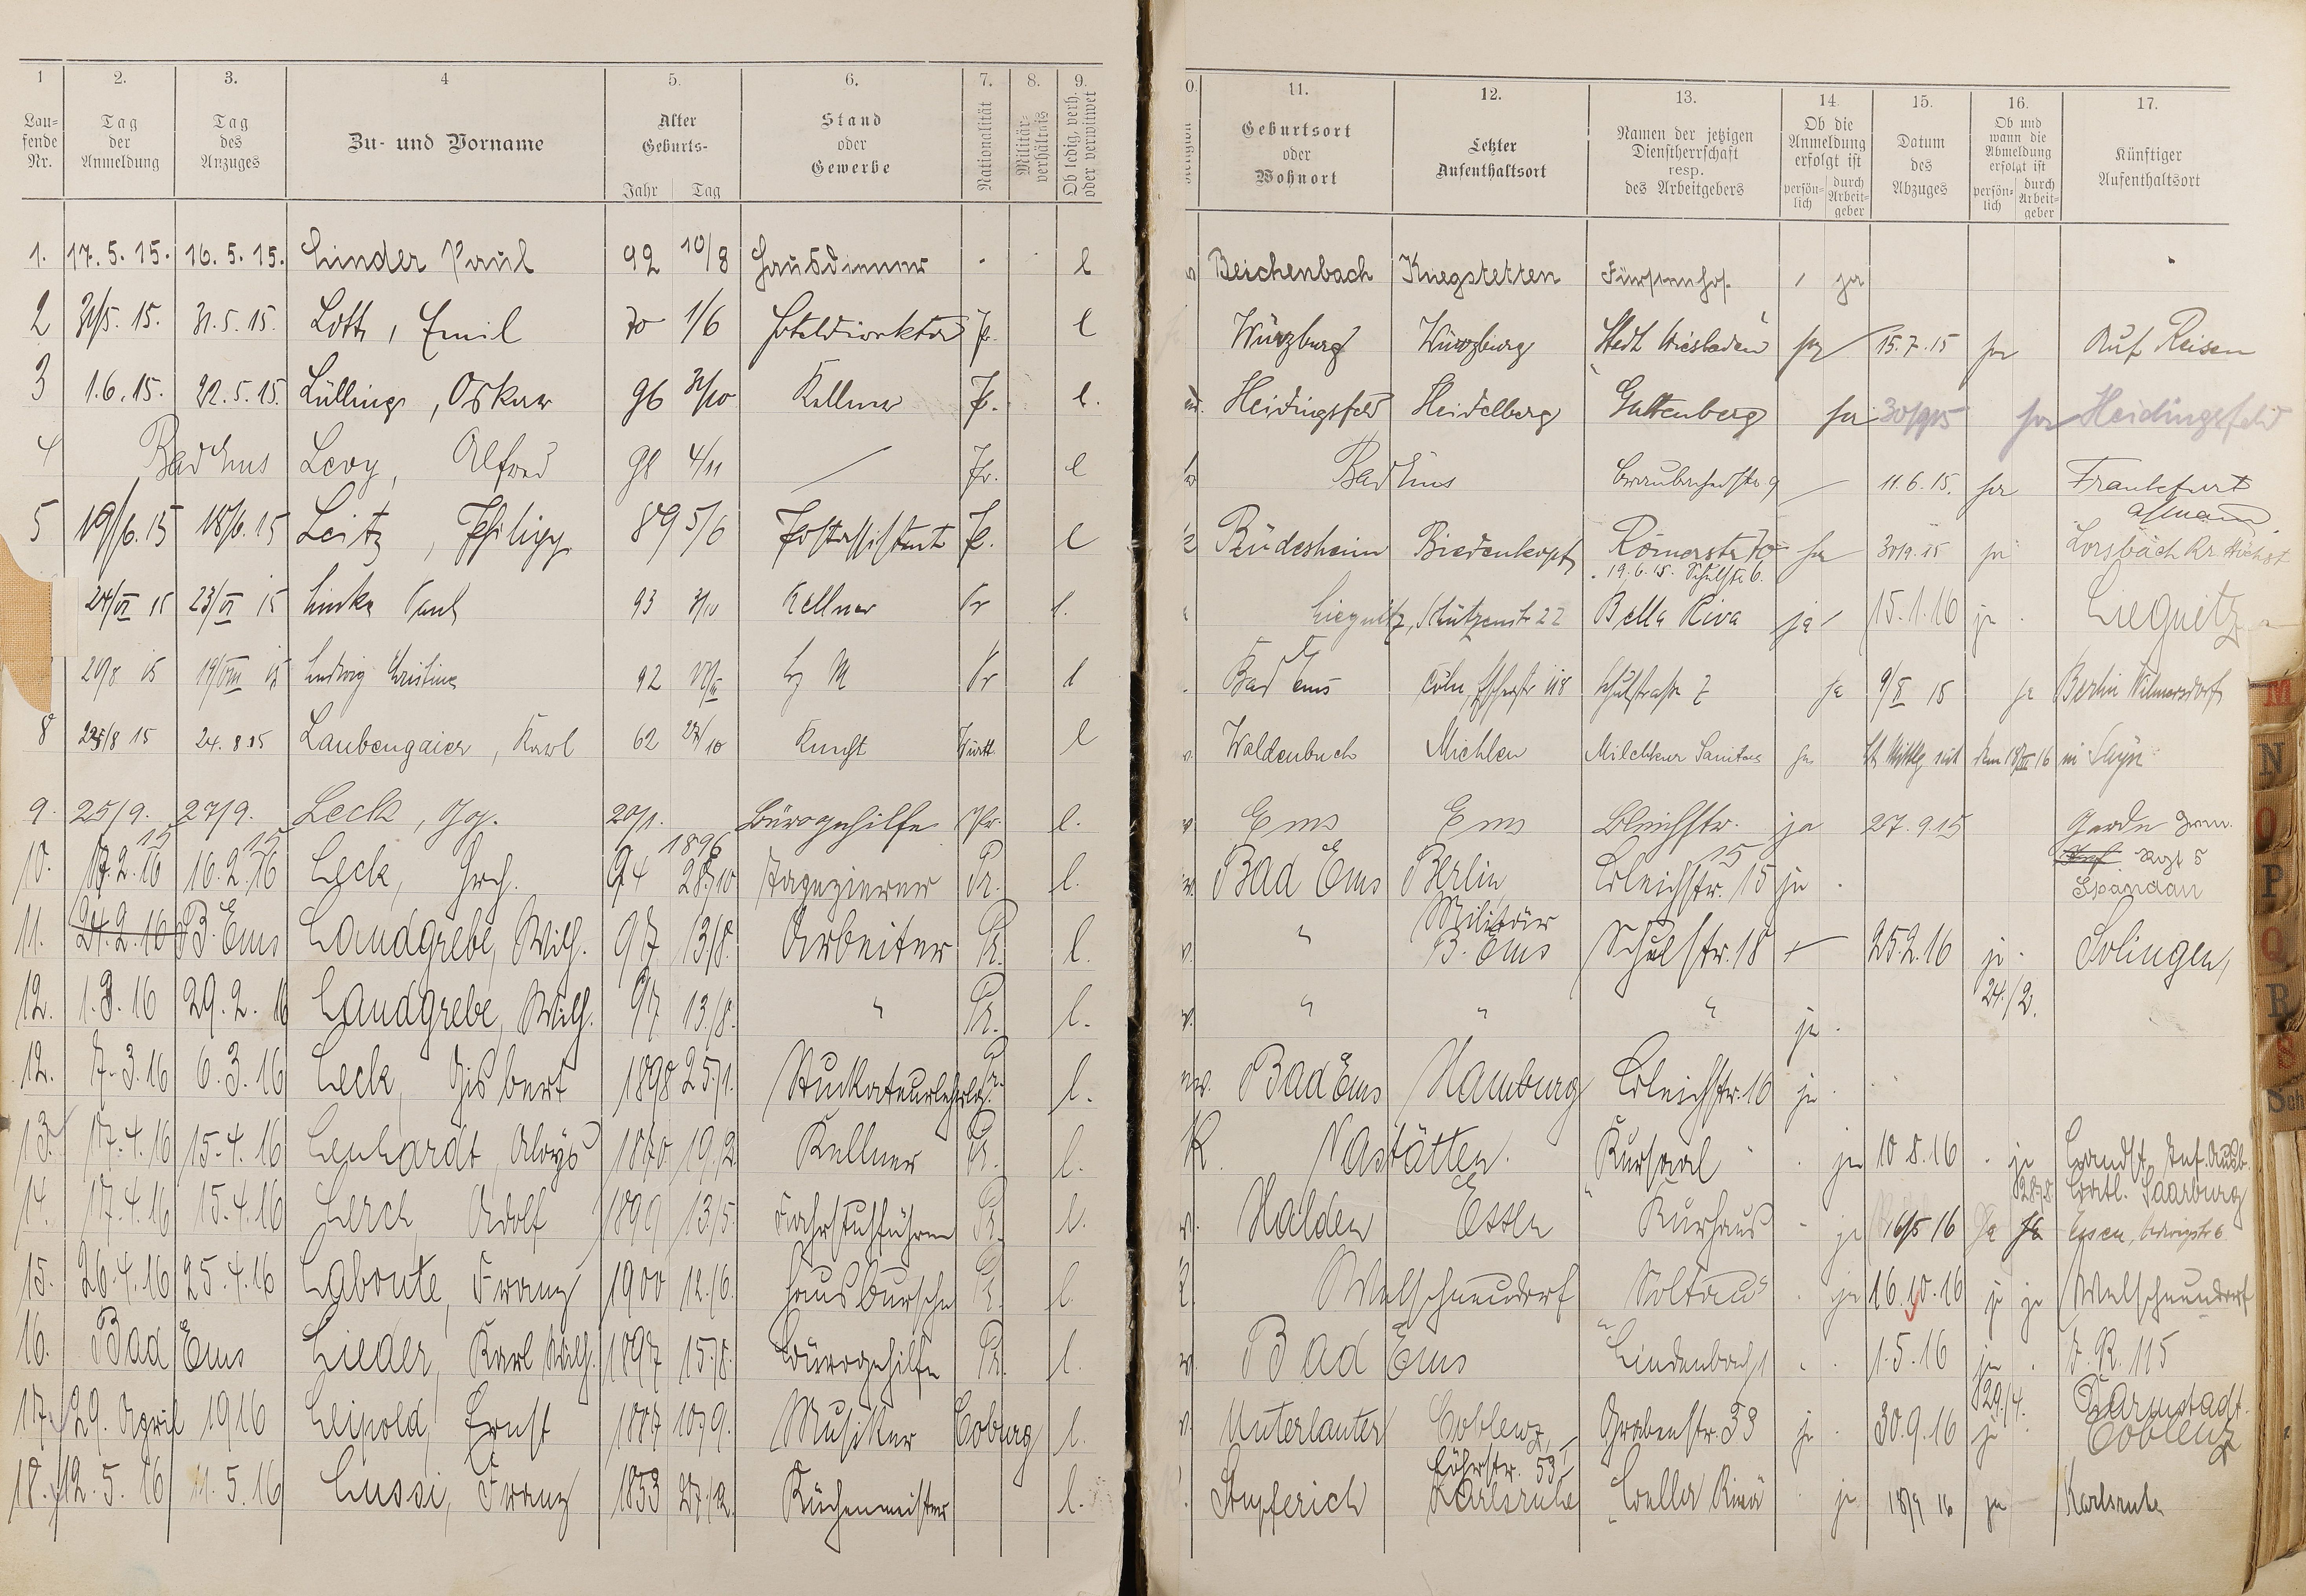 1 2. 3. 4 5. 6. 7. 8. 9.
Lau-
fende
Nr.
Tag
der
Anmeldung
Tag
des
Anzuges
Zu- und Vorname
Alter
Geburts-
Jahr Tag
Stand
oder
Gewerbe
Nationalität
Militär-
verhältnis
Ob ledig, verh.
oder verwitwet
0. 11. 12. 13. 14. 15. 16. 17.
Geburtsort
oder
Wohnort
Letzter
Aufenthaltsort
Namen der jetzigen
Dienstherrschaft
resp.
des Arbeitgebers
Ob die
Anmeldung
erfolgt ist
persön-
lich
durch
Arbeit-
geber
Datum
des
Abzuges
Ob und
wann die
Abmeldung
erfolgt ist
persön-
lich
durch
Arbeit-
geber
Künftiger
Aufenthaltsort
1. 17. 5. 15. 16. 5. 15. Linder Paul 92 10/8 Hausdiener l Kriegstetten Fürstenhof ja
2 31/5. 15. 31. 5. 15. Lotts, Emil 70 1/6 Hoteldirektor Pr. l Würzburg Würzburg Stadt Wiesbaden ja 15. 7. 15 ja Auf Reisen
3 1. 6. 15. 22. 5. 15. Lülling, Oskar 96 31/10 Kellner Pr. l. Heidingsfeld Heidelberg Guttenberg ja 30/9 15 ja Heidingsfeld
4 Bad Ems Levy, Alfred 98 4/11 Pr. l Bad Ems 11. 6. 15. ja Frankfurt
5 19/6. 15 18/6. 15 Leitz, Philipp 89 5/6 Postassistent Pr. l Rüdesheim Biedenkopf Römerstr 70 ja 30/9. 15 ja Lorsbach Kr. Höchst
19. 6. 15. Schulstr 6.
24/VI 15 23/VI 15 Linke Paul 93 Kellner Pr l. Liegnitz, Schützenstr 22 Bella Riva ja 15. 1. 16 ja Liegnitz
20/8 15 19/VIII 15 Ludwig Christine 92 Pr l Bad Ems Schulstraße 7 ja 15 ja Berlin Wilmersdorf
8 15 24. 8. 15 Laubengaier, Karl 62 27/10 Württ. l Waldenbuch Miehlen Milchkur Sanitas ja
9. 25/9. 15 27/9. 15 Leck, Jos. 20/1. 1896 Bürogehilfe Pr. l. Ems Ems Bleichstr. 15 ja 27. 9. 15 Garde Gren.
Rgt 5
Spandau
10. 17. 2. 16 16. 2. 16 Leck, Hrch. 94 28/10 Tapezierer Pr. l. Bad Ems Berlin Bleichstr. 15 ja
Militär
11. 24. 2. 16 B. Ems Landgrebe, Wilh. 97 13/8. Arbeiter Pr. l. " B. Ems Schulstr. 18 25. 2. 16 ja. Solingen
24./2.
12. 1. 3. 16 29. 2. 16 Landgrebe, Wilh. 97 13./8. " Pr. l. " " " ja.
12. 7. 3. 16 6. 3. 16 Leck, Gisbert 1898 25./1. Stuckateurlehrlg. Pr. l. Bad Ems Hamburg Bleichstr. 16 ja
13. 17. 4. 16 15. 4. 16 Lenhardt, Aloys 1870 19./2 Kellner Pr. l. Nastätten. Kursaal ja 10. 8. 16 ja Landst. Inf. Ausb.
Batl. Saarburg
14. 17. 4. 16 15. 4. 16 Lerch Adolf 1899 13./5. Fahrstuhlführer Pr. l. Halden Essen Kurhaus ja 16/5 16 Ja Essen,
15. 26. 4. 16 25. 4. 16 Labonte, Franz 1900 12./6. Hausbursche Pr. l. Welschneudorf Soltau ja 16. 10. 16 ja ja Welschneudorf
16. Bad Ems Lieder, Karl Wilh. 1897 15./8. Bürogehilfe Pr. l. Bad Ems Lindenbach 1. 5. 16 ja. J. R. 115
29./4. Darmstadt.
17. 29. April 1916 Leipold, Ernst 1887 10./9. Musiker Coburg l. Unterlauter Coblenz, Grabenstr. 33 ja 30. 9. 16 ja Coblenz
Löhrstr. 53
18. 12. 5. 16 11. 5. 16 Lussi, Franz 1853 27./12. Küchenmeister l. Stupferich Karlsruhe Bella Riva ja 18/9 16 ja Karlsruhe
M
N
O
P
Q
R
S
Sch